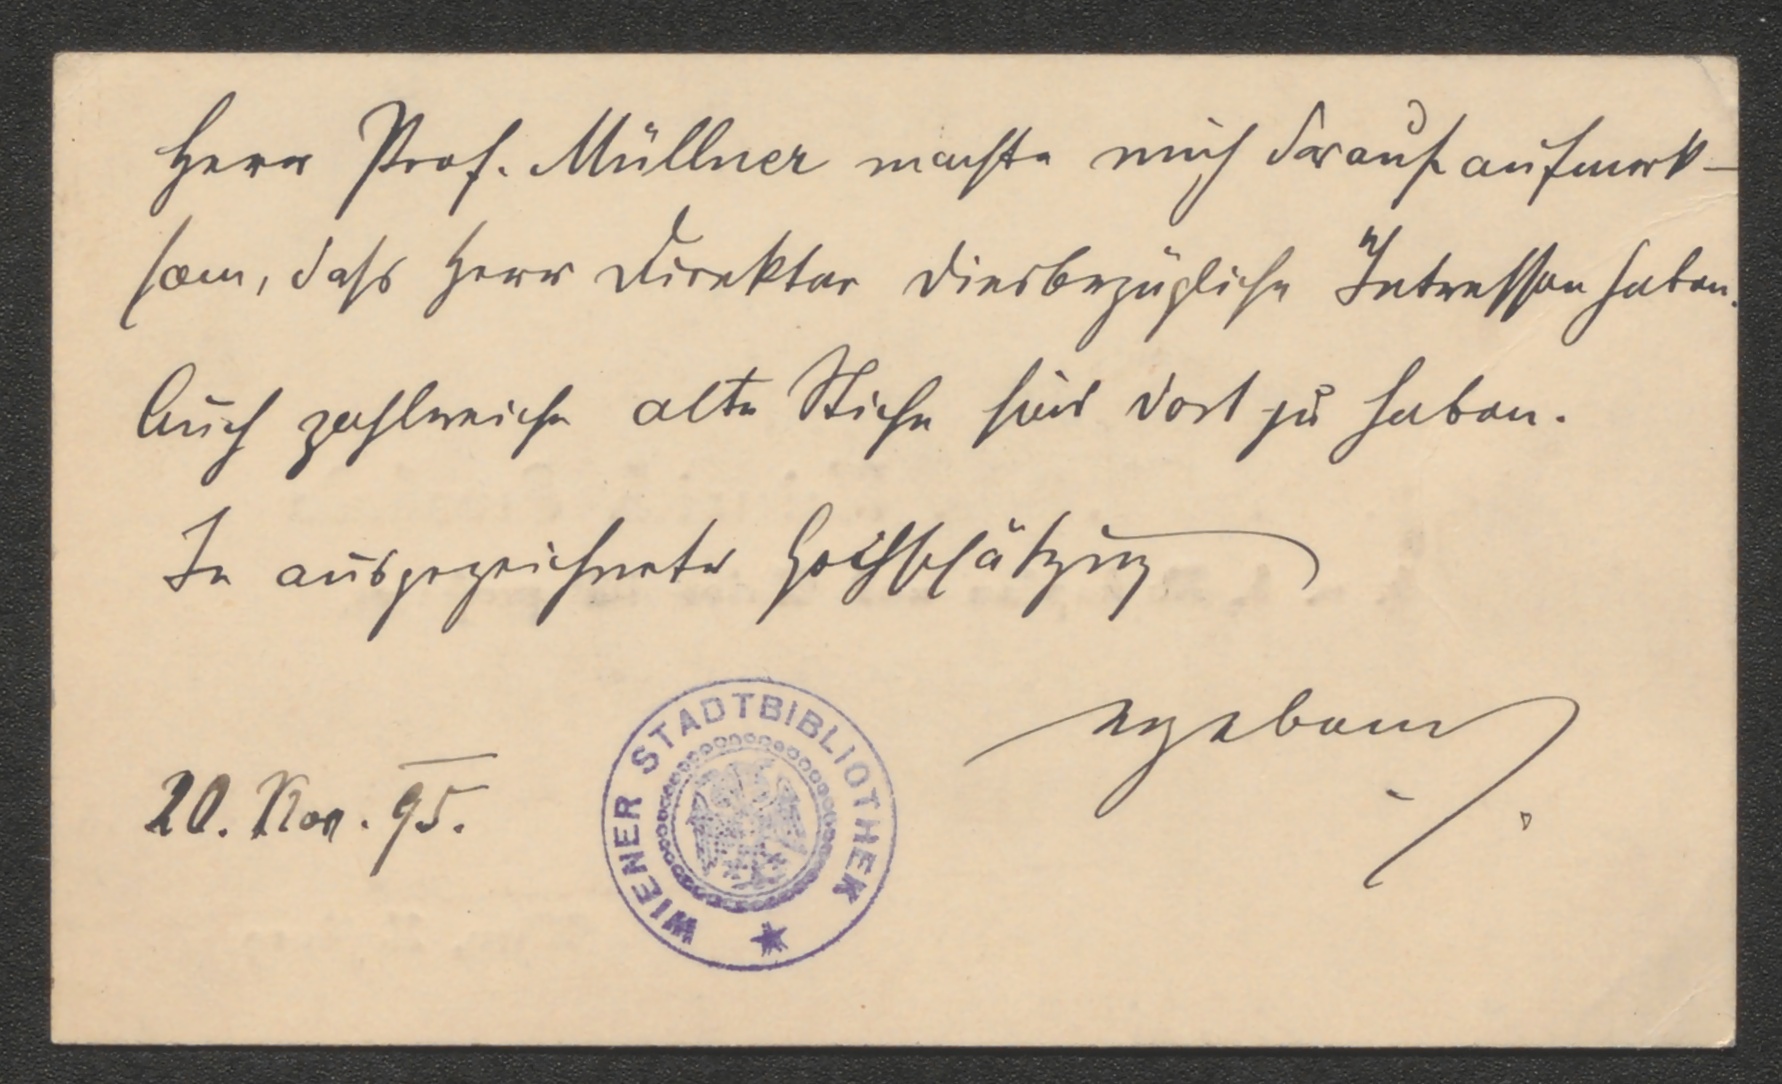 Herr Prof. Müllner machte mich darauf aufmerk-
sam, dass Herr Direktor diesbezügliche Intressen haben.
Auch zahlreiche alte Stiche sind dort zu haben.
In ausgezeichneter Hochschätzung
ergebenst
20. Nov. 95.
WIENER STADTBIBLIOTHEK